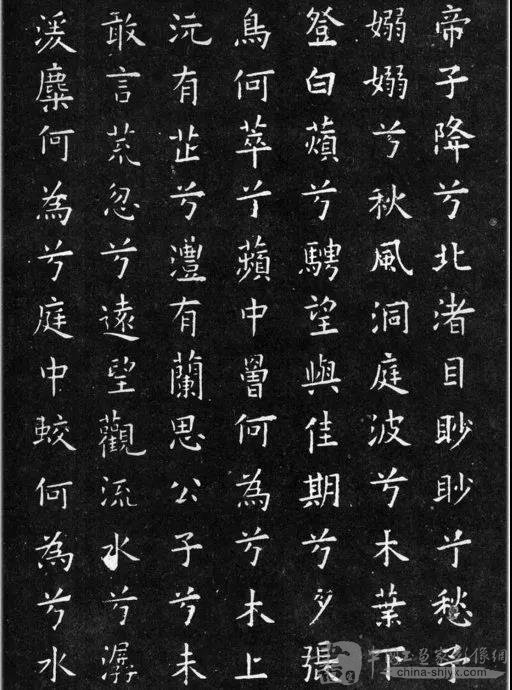 帝子降兮北渚目眇眇兮愁予
嫋嫋兮秋風洞庭波兮木葉下
登白薠兮騁望與佳期兮夕張
鳥何萃兮蘋中罾何為兮木上
沅有芷兮灃有蘭思公子兮未
敢言荒忽兮遠望觀流水兮潺
湲麋何為兮庭中蛟何為兮水
china-snjyk.com